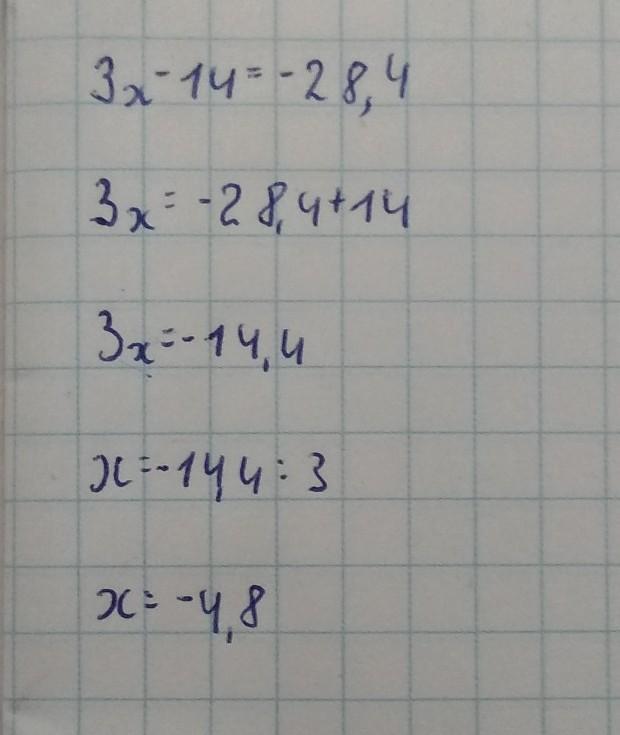 3x-14=-28,4
3x=-28,4+14
3x=-14,4
x=-14,4:3
x=-4,8